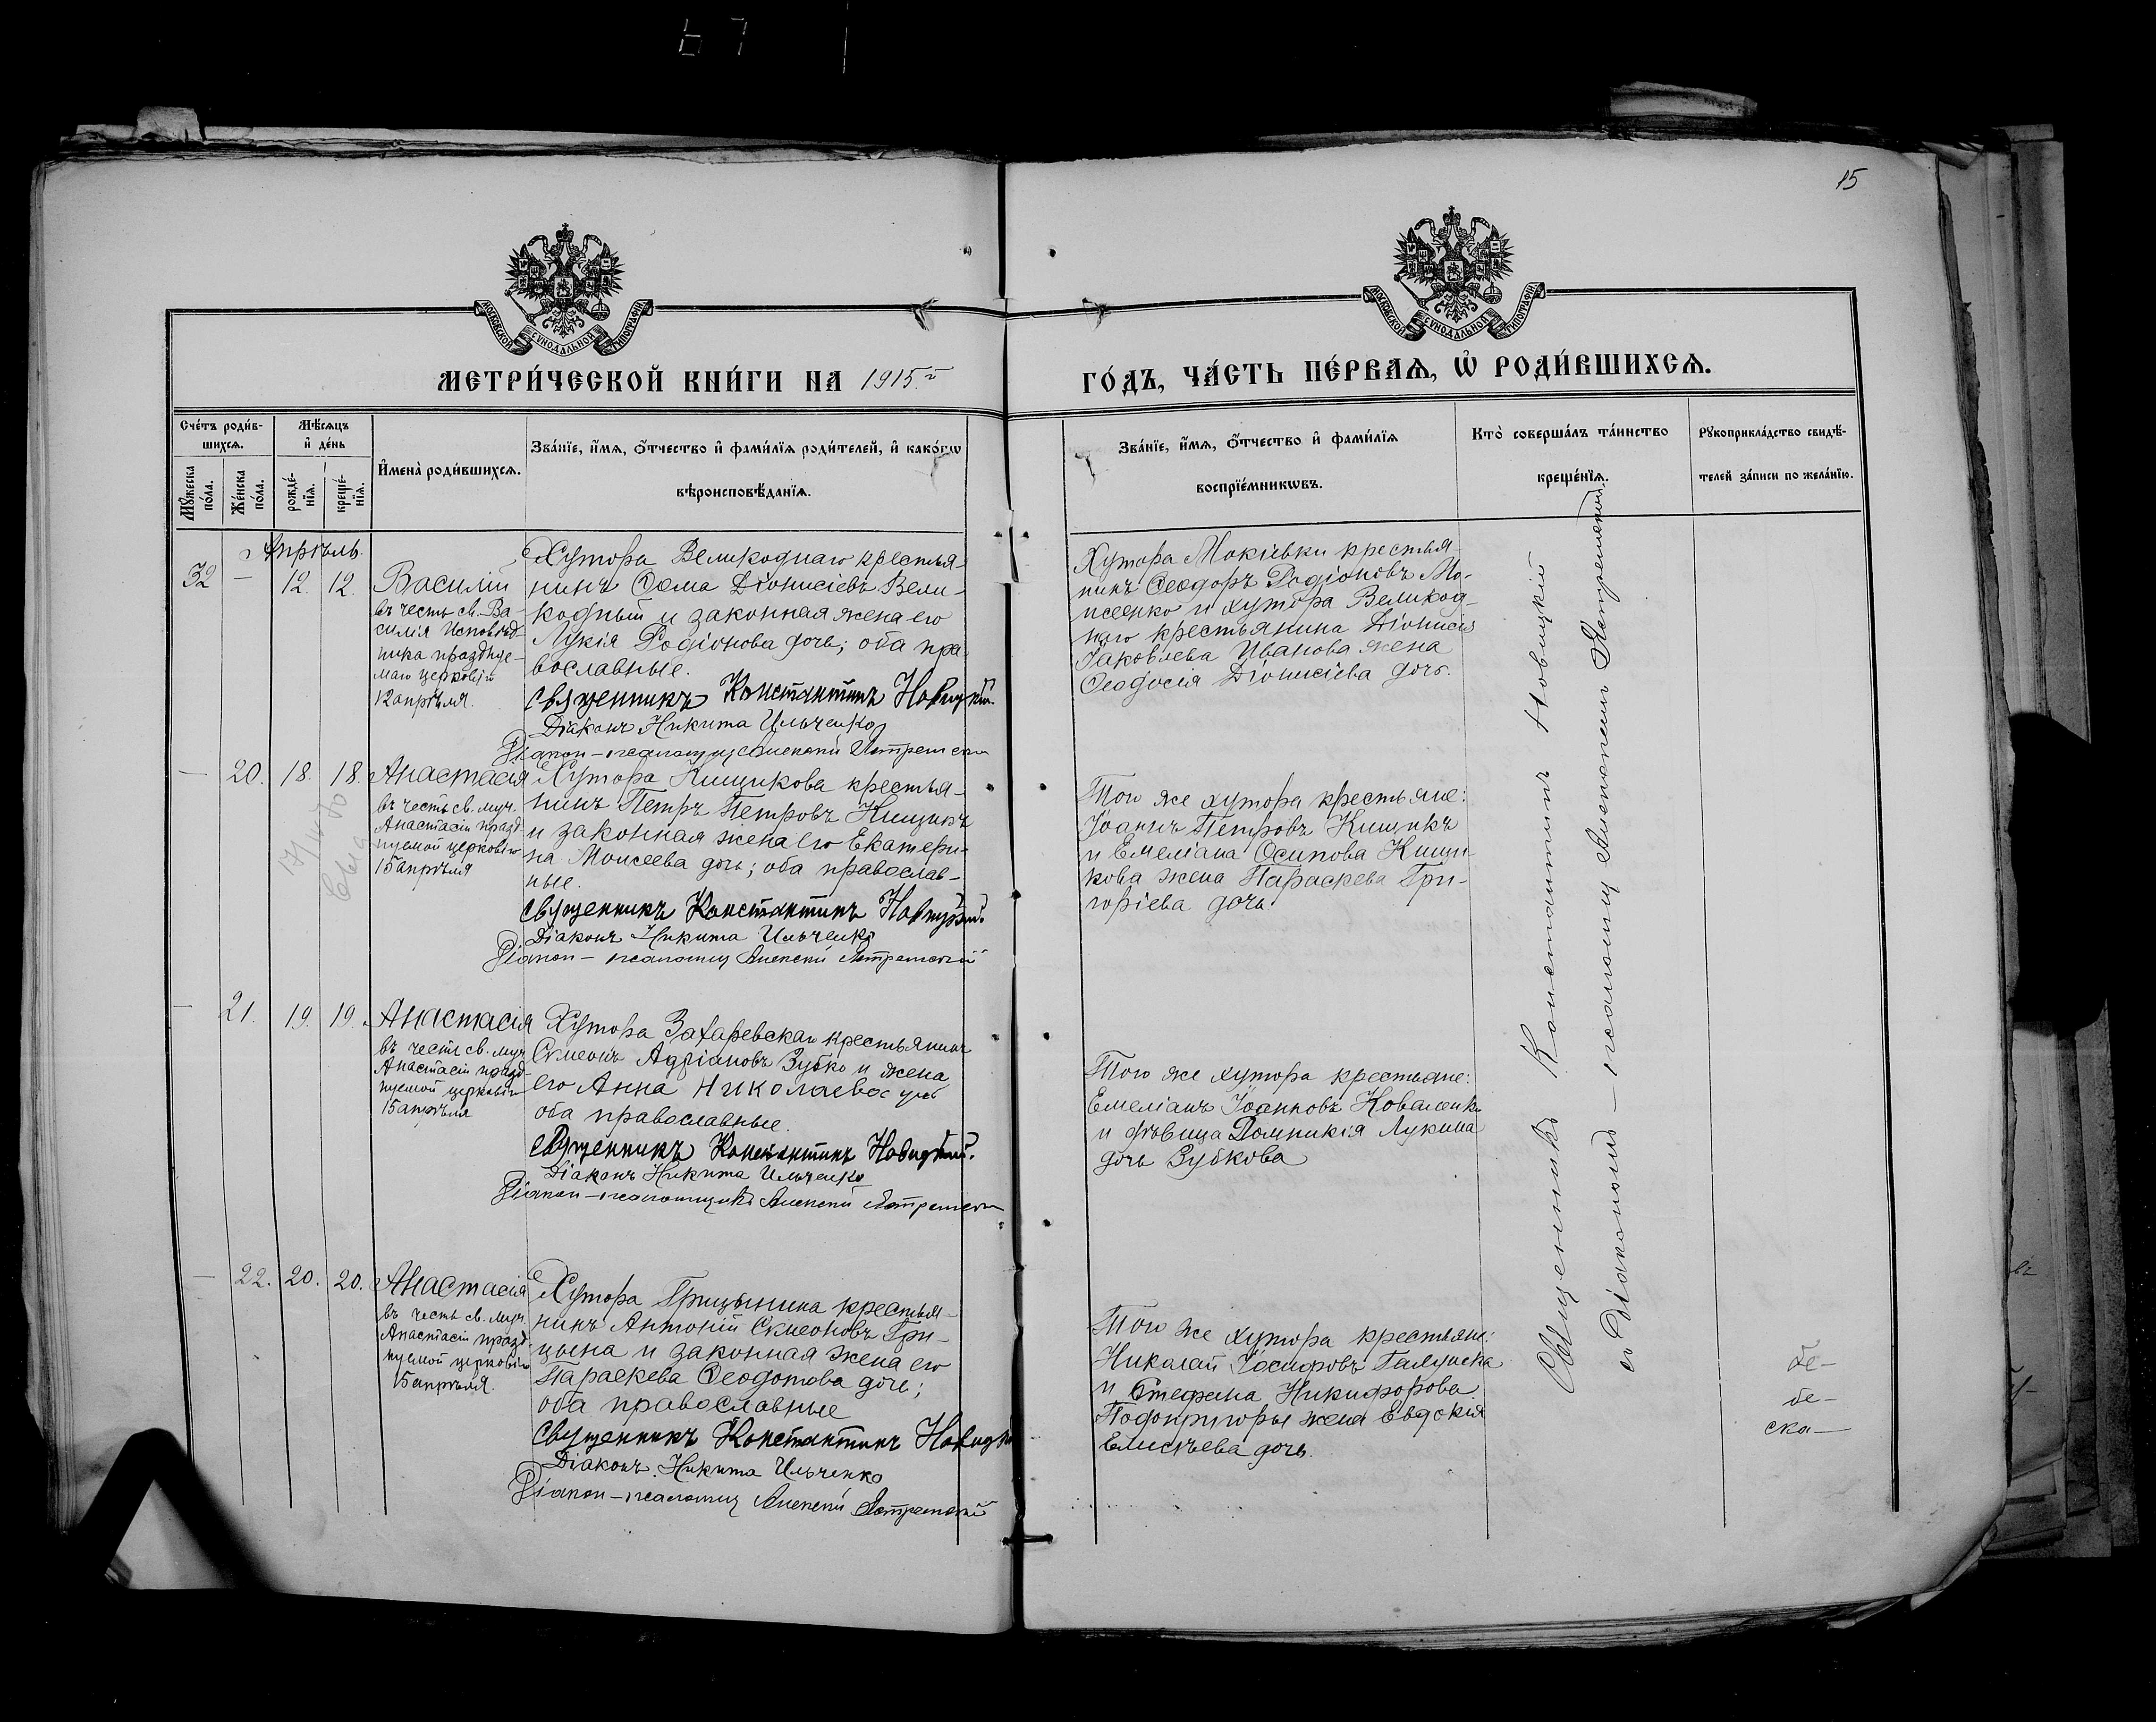 15
МОСКОВСКОЙ СѴНОДАЛЬНОЙ ТИПОГРАФІИ
МОСКОВСКОЙ СѴНОДАЛЬНОЙ ТИПОГРАФІИ
МЕТРИ́ЧЕСКОЙ КНИ́ГИ НА 1915.й
ГО́ДЪ, ЧА́СТЬ ПЕ́РВАѦ, Ѡ҆ РОДИ́ВШИХСѦ.
Сче́тъ роди́в-
шихсѧ.
Мѣ́сѧцъ
и҆ де́нь
Мꙋ́жеска
по́ла.
Же́нска
по́ла.
рожде́-
нїѧ.
креще́-
нїѧ.
И҆мена̀ роди́вшихсѧ.
Зва́нїе, и҆́мѧ, ѻ҆́тчество и҆ фами́лїѧ роди́телей, и҆ како́гѡ
вѣроисповѣ́данїѧ.
Зва́нїе, и҆́мѧ, ѻ҆́тчество и҆ фами́лїѧ
воспрїе́мникѡвъ.
Кто̀ соверша́лъ та́инство
креще́нїѧ.
Рꙋкоприкла́дство свидѣ́-
телей за́писи по жела́нїю.
Апрѣль.
32 — 12. 12.
Василій
въ честь св. Ва-
силія Исповѣд-
ника празднуе-
маго церковію
12 апрѣля.
Хутора Великоднаго крестья-
нинъ Ѳома Діонисіевъ Вели-
кодный и законная жена его
Лукія Родіонова дочь; оба пра-
вославные.
Священникъ Константинъ Новицкій.
Діаконъ Никита Ильченко
Діакон-псаломщ Алексей
Хутора Мокіевки крестья-
нинъ Ѳеодоръ Родіоновъ Мо-
исеенко и хутора Великод-
наго крестьянина Діонисія
Іаковлева Иванова жена
Ѳеодосія Діонисіева дочь.
— 20. 18. 18.
Анастасія
въ честь св. муч.
Анастасіи празд-
нуемой церковію
15 апрѣля
Хутора Кищикова крестья-
нинъ Петръ Петровъ Кищикъ
и законная жена его Екатери-
на Моисеева дочь; оба православ-
ные.
Священникъ Константинъ Новицкій.
Діаконъ Никита Ильченко
Діакон — псаломщ Алексей
Того же хутора крестьяне:
Іоаннъ Петровъ Кищикъ
и Емеліана Осипова Кищи-
кова жена Параскева Гри-
горіева дочь.
— 21. 19. 19.
Анастасія
въ честь св. муч.
Анастасіи празд-
нуемой церковію
15 апрѣля
Хутора Захаревскаго крестьянинъ
Симеонъ Адріановъ Зубко и жена
его Анна Николаева дочь
оба православные.
Священникъ Константинъ Новицкій.
Діаконъ Никита Ильченко
Діакон — псаломщикъ Алексей
Того же хутора крестьяне:
Емеліанъ Іоанновъ Коваленко
и дѣвица Домникія Лукина
дочь Зубкова
— 22. 20. 20.
Анастасія
въ честь св. муч.
Анастасіи празд-
нуемой церковію
15 апрѣля.
Хутора Грицынина крестья-
нинъ Антоній Симеоновъ Гри-
цына и законная жена его
Параскева Ѳеодотова дочь;
оба православные
Священникъ Константинъ
Діаконъ Никита Ильченко
Діакон — псаломщ Алексей
Того же хутора крестьяне:
Николай Іосифовъ
и Стефана Никифорова
Подопригоры жена Евдокія
Елисѣева дочь.
Священникъ Константинъ Новицкій
со Діакономъ — псаломщ Алексеем
бе-
ска—